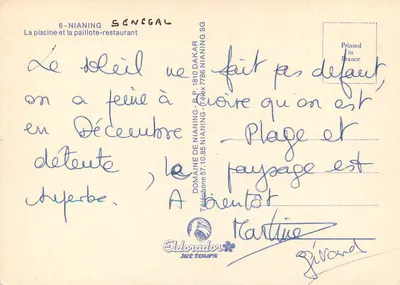 6 - NIANING SENEGAL
La piscine et la paillote-restaurant
Printed in France
Le soleil ne fait pas défaut,
on a peine à croire qu'on est
en Décembre - Plage et
détente, le paysage est
superbe. A bientôt
Martine
Girard
DOMAINE DE NIANING - B.P. 1810 DAKAR
Téléphone 57.10.85 NIANING - Telex 7786 NIANING SG
Eldorador
jet tours